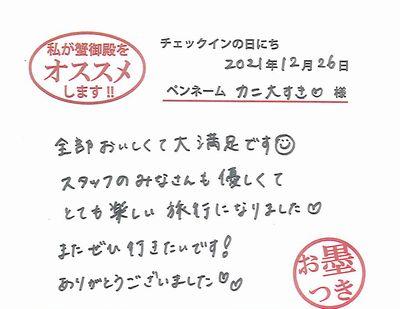 私が蟹御殿を
オススメ
します!!
チェックインの日にち
2021年12月26日
ペンネーム カニ大すき♡ 様
全部おいしくて大満足です☺
スタッフのみなさんも優しくて
とても楽しい旅行になりました♡
またぜひ行きたいです!
ありがとうございました♡♡
お墨
つき